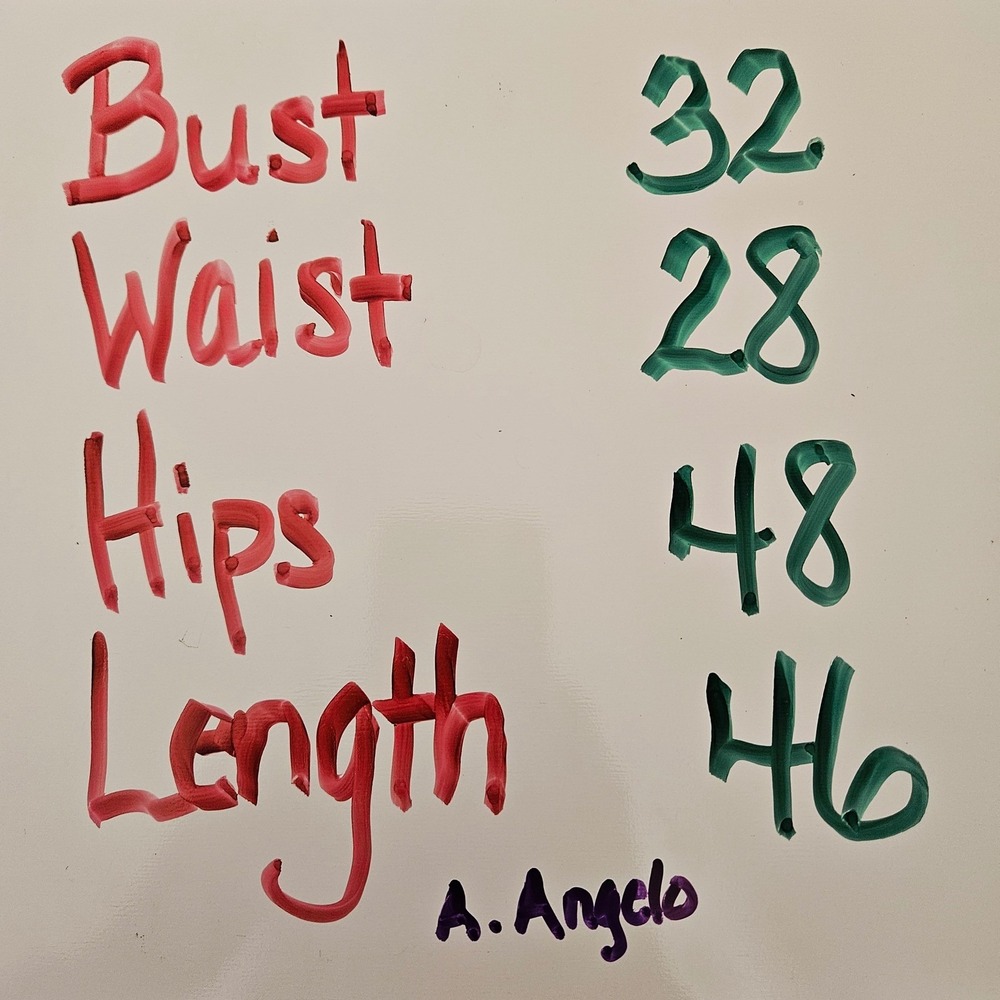 Bust 32
Waist 28
Hips 48
Length 46
A. Angelo